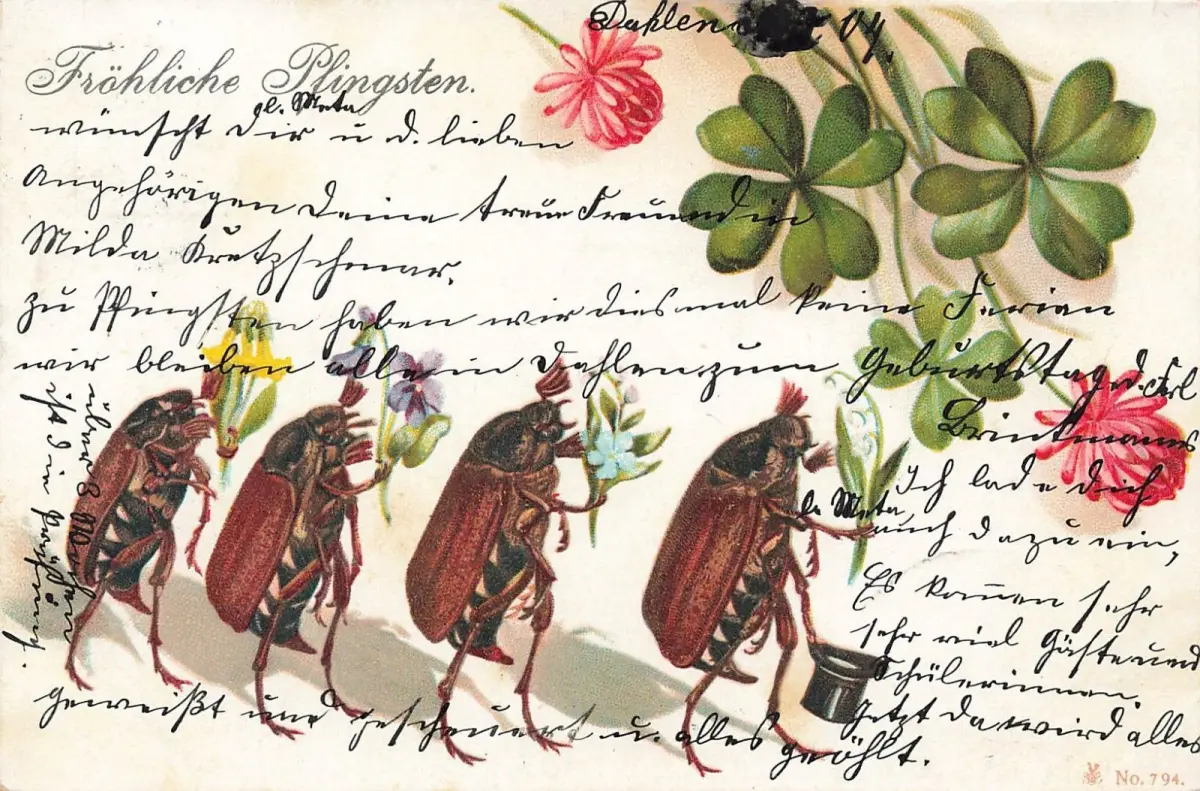 Dahlen 04.
Fröhliche Pfingsten.
l. Meta
wünscht Dir u d. lieben
Angehörigen Deine treue Freundin
Milda Kretzschmar.
zu Pfingsten haben wir diesmal keine Ferien
wir bleiben alle in Dahlen, zum Geburtstag d. Frl
Brinkmanns
Ich lade Dich
l. Meta
auch dazu ein,
Es kommen sehr
sehr viel Gäste und
Schülerinnen.
Jetzt da wird alles
geweißt und gescheuert u. alles geöhlt.
ist in
No. 794.